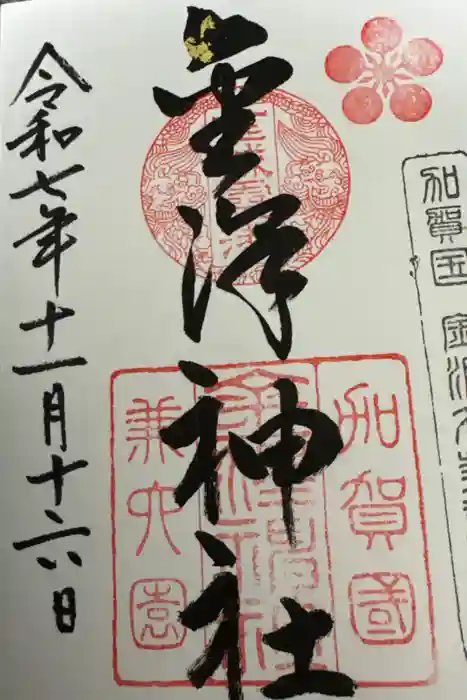 加賀国 金沢
金澤神社
加賀國
金澤神社
兼六園
令和七年十一月十六日